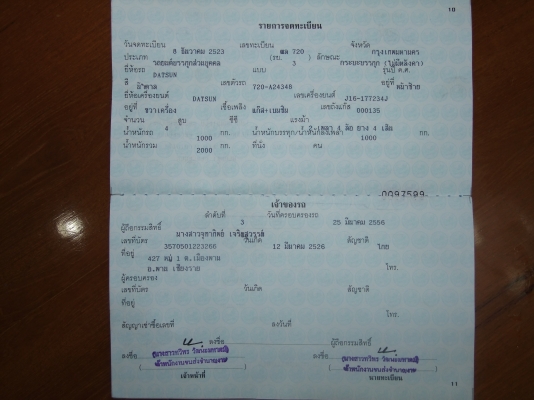 10
รายการจดทะเบียน
วันจดทะเบียน 8 ธันวาคม 2523 เลขทะเบียน 720 จังหวัด กรุงเทพมหานคร
ประเภท รถยนต์บรรทุกส่วนบุคคล (รย. 3 ) ลักษณะ กระบะบรรทุก (ไม่มีหลังคา)
ยี่ห้อรถ DATSUN แบบ รุ่นปี ค.ศ.
สี น้ำตาล เลขตัวรถ 720-A24348 อยู่ที่ หน้าซ้าย
ยี่ห้อเครื่องยนต์ DATSUN เลขเครื่องยนต์ J16-177234J
อยู่ที่ ขวาเครื่อง เชื้อเพลิง แก๊ส+เบนซิน เลขถังแก๊ส 000135
จำนวน 4 สูบ ซีซี แรงม้า 2 เพลา 4 ล้อ ยาง 4 เส้น
น้ำหนักรถ 1000 กก. น้ำหนักบรรทุก/น้ำหนักลงเพลา 1000 กก.
น้ำหนักรวม 2000 กก. ที่นั่ง คน
0097599
เจ้าของรถ
ลำดับที่ 3 วันที่ครอบครองรถ 25 มีนาคม 2556
ผู้ถือกรรมสิทธิ์ นางสาว
เลขที่บัตร 3570501223266 วันเกิด 12 มีนาคม 2526 สัญชาติ ไทย
ที่อยู่ 427 หมู่ 1 ต.เมืองพาน
อ.พาน เชียงราย โทร.
ผู้ครอบครอง
เลขที่บัตร วันเกิด สัญชาติ
ที่อยู่
โทร.
สัญญาเช่าซื้อเลขที่ ลงวันที่
ลงชื่อ ผู้ถือกรรมสิทธิ์
ลงชื่อ ลงชื่อ
เจ้าพนักงานขนส่งชำนาญงาน เจ้าพนักงานขนส่งชำนาญงาน
เจ้าหน้าที่ นายทะเบียน
11